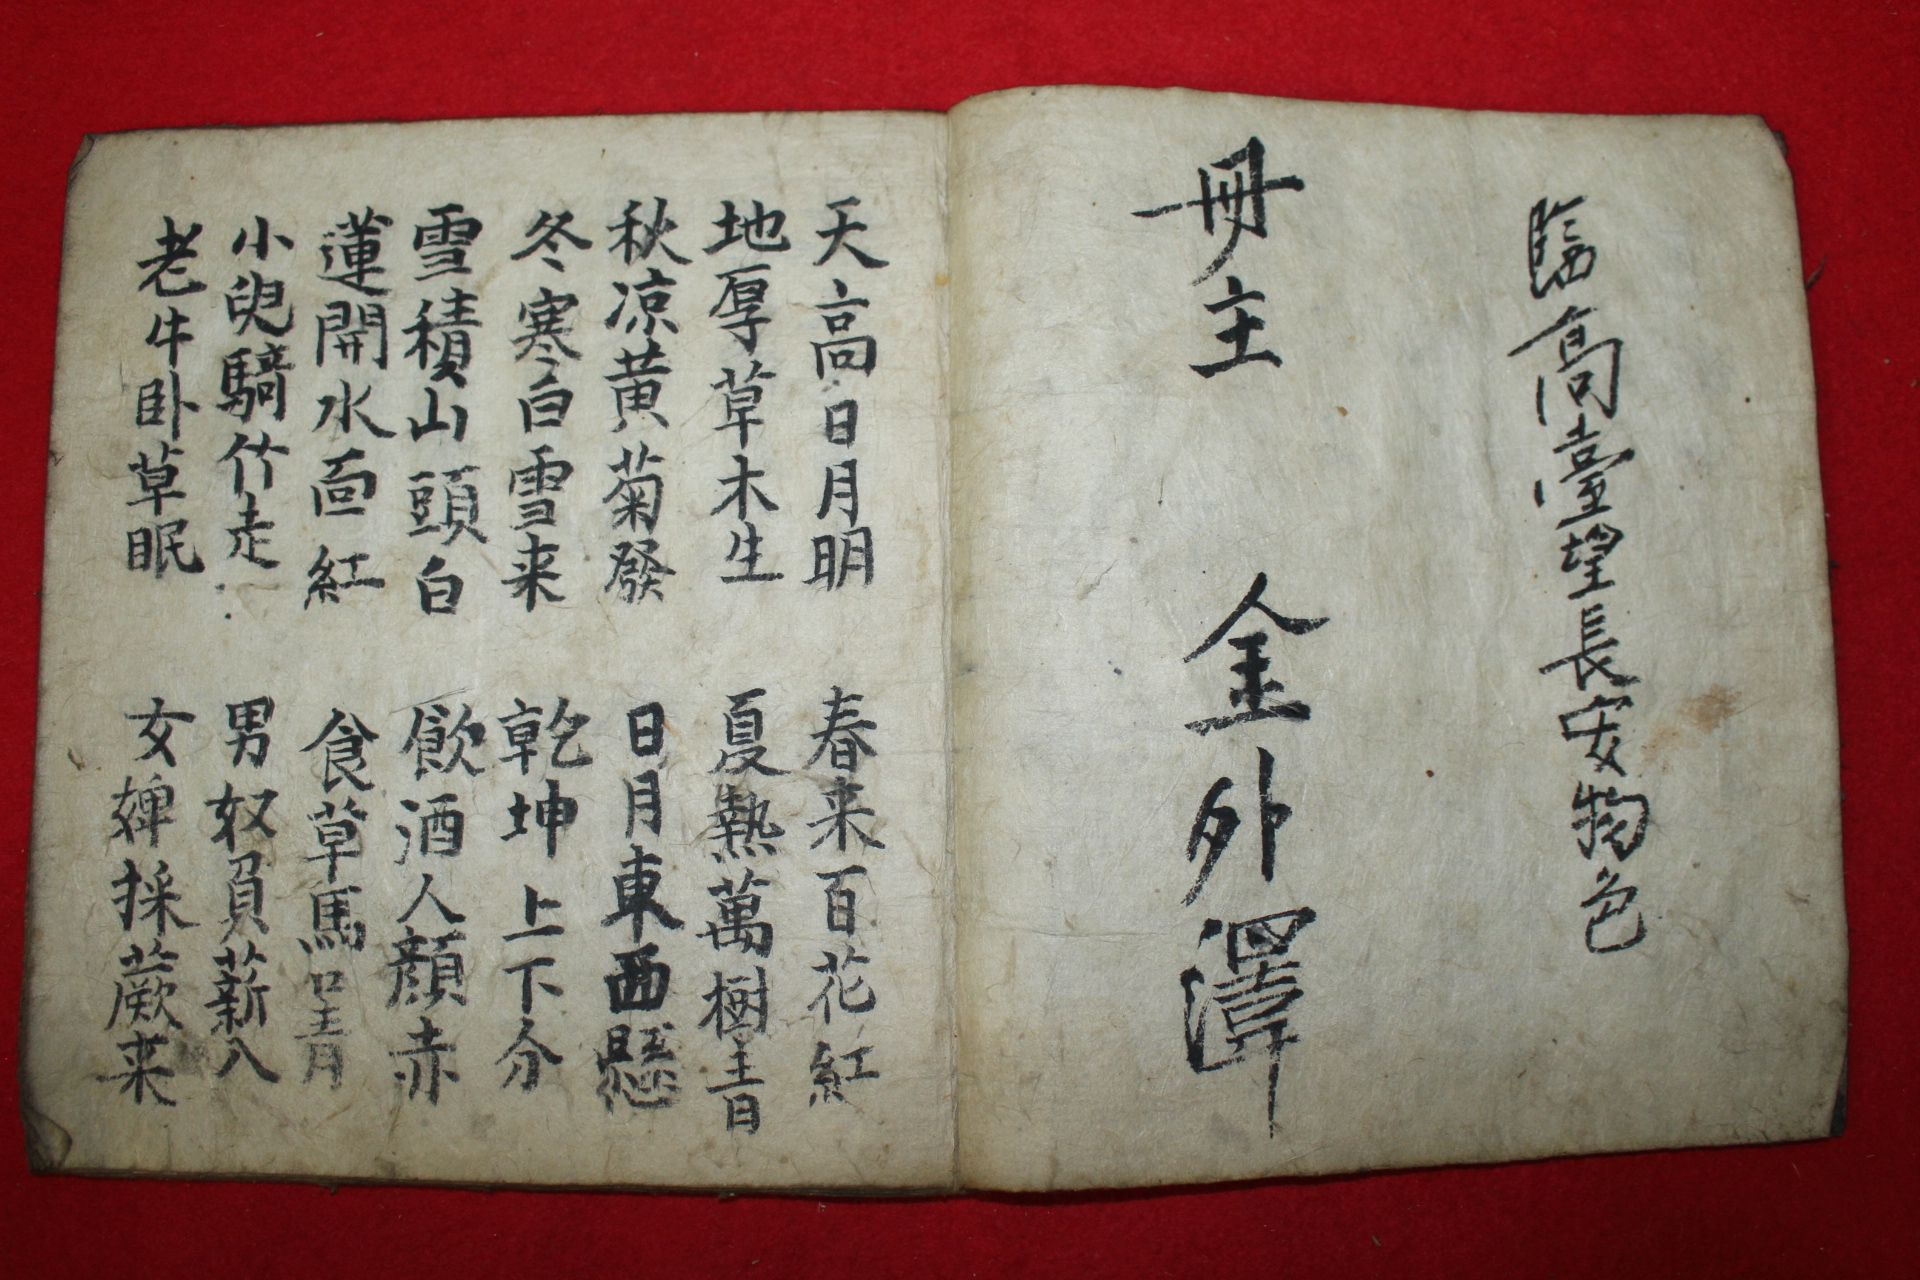 臨高臺望長安物色
冊主 金外澤
天高日月明 春来百花紅
地厚草木生 夏熱萬樹青
秋凉黄菊發 日月東西懸
冬寒白雪来 乾坤上下分
雪積山頭白 飮酒人顔赤
蓮開水面紅 食草馬口青
小兒騎竹走 男奴負薪入
老牛卧草眠 女婢採蕨来